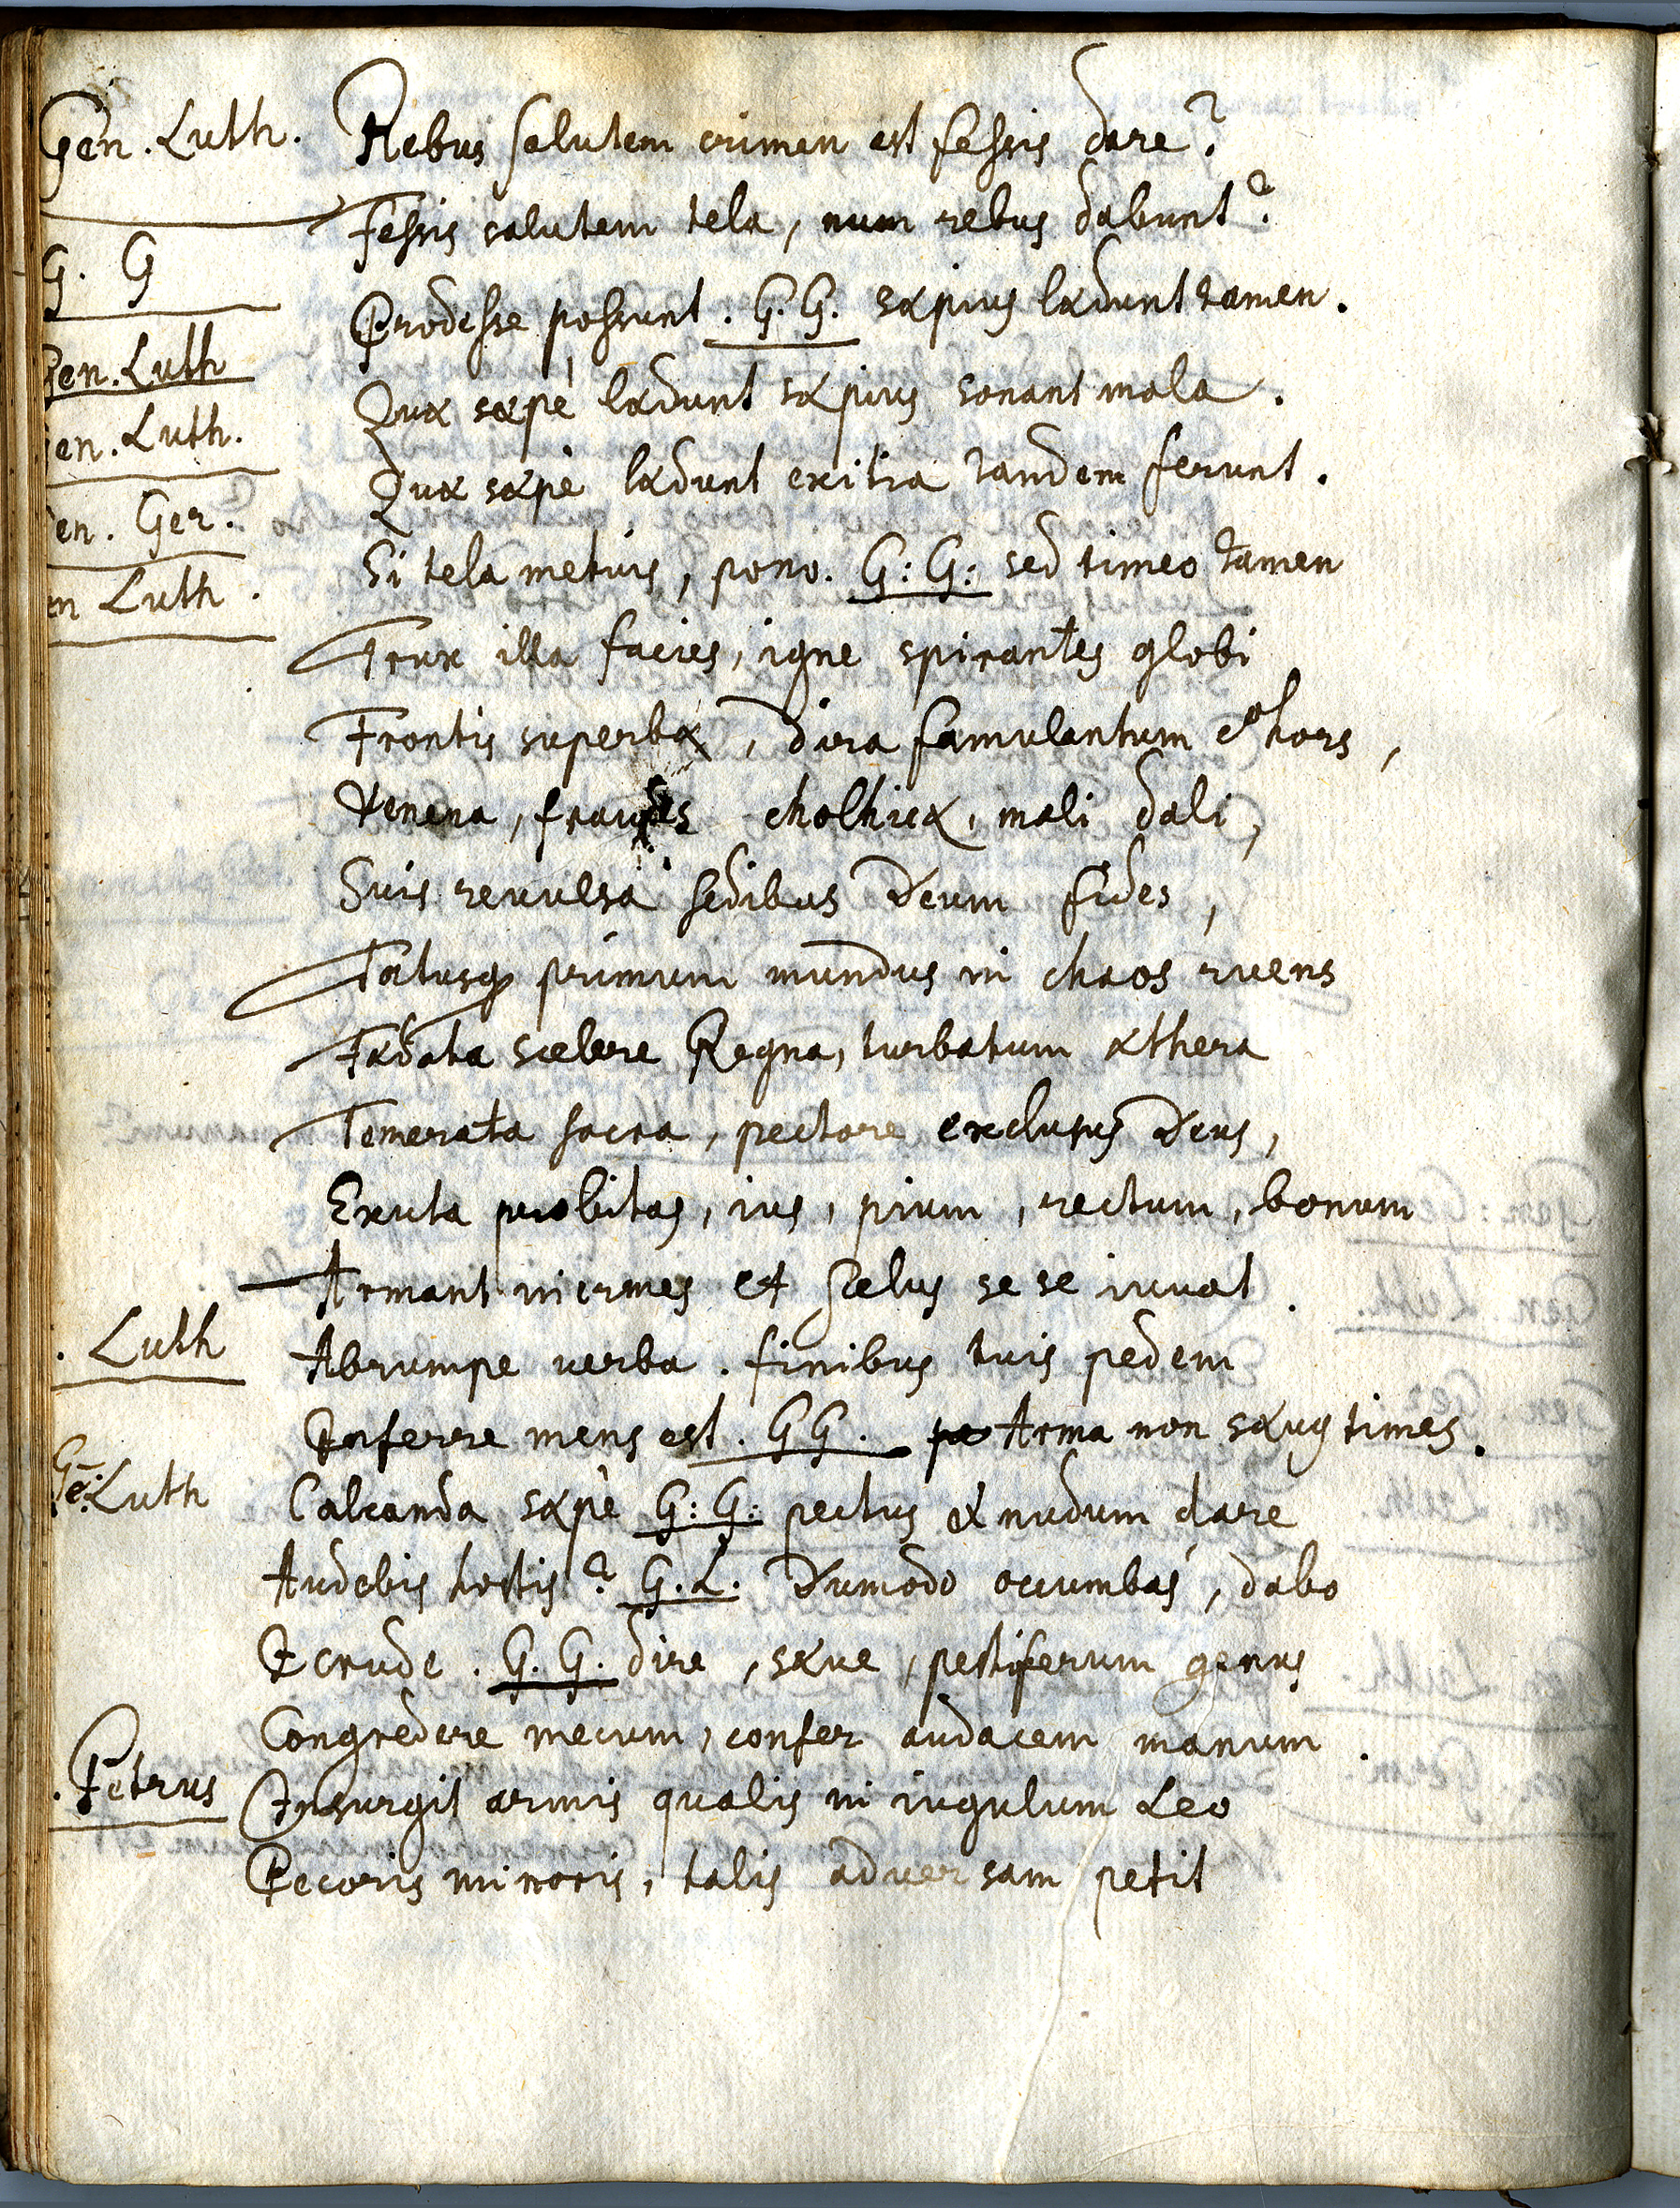 Gen. Luth. Rebus salutem crimen est fessis dare?
Fessis salutem tela, num rebus dabunt?
G. G Prodesse possunt. G.G. sæpius lædunt tamen.
Gen. Luth Quæ sæpè lædunt sæpius sonant mala.
Gen. Luth. Quæ sæpè lædunt exitia tandem ferunt.
Gen. Ger. Si tela metuis, pono. G:G: sed timeo tamen
en Luth. Trux illa facies, igne spirantes globi
Frontis superbæ, dira famulantum cohors,
Venena, fraudes cholhicæ, mali dali,
Suis reuulsa sedibus Deum fides,
Fatusq primum mundus in chaos ruens
Fædata scelere Regna, turbatum æthera
Temerata sacra, pectore exclusus Deus,
Exuta probitas, ius, pium, rectum, bonum
Armant inermes et scelus se se iuuat.
. Luth Abrumpe uerba. finibus tuis pedem
Inferre mens est. GG. Arma non sæua times.
Ge: Luth Calcanda sæpè G:G: pectus et nudum dare
Audebis hostis? G.L. Dumodo occumbas, dabo
Ecrude. G.G. dire, sæue, pestiferum genus
Congredere mecum, confer audacem manum.
. Petrus Insurgit armis qualis in iugulum Leo
Pecoris minoris, talis aduersam petit